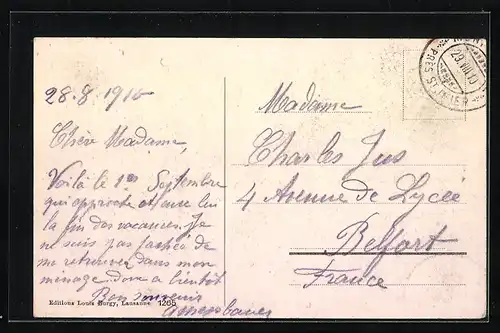 28.8.1910
Chère Madame,
Voilà le 1er Septembre
qui approche et avec lui
la fin des vacances. Je
ne suis pas fachée de
me retrouver dans mon
ménage. donc a bientôt
Bon souvenir
Madame
Charles Jus
4 Avenue de Lycée
Belfort
France
Editions Louis Burgy, Lausanne 1265